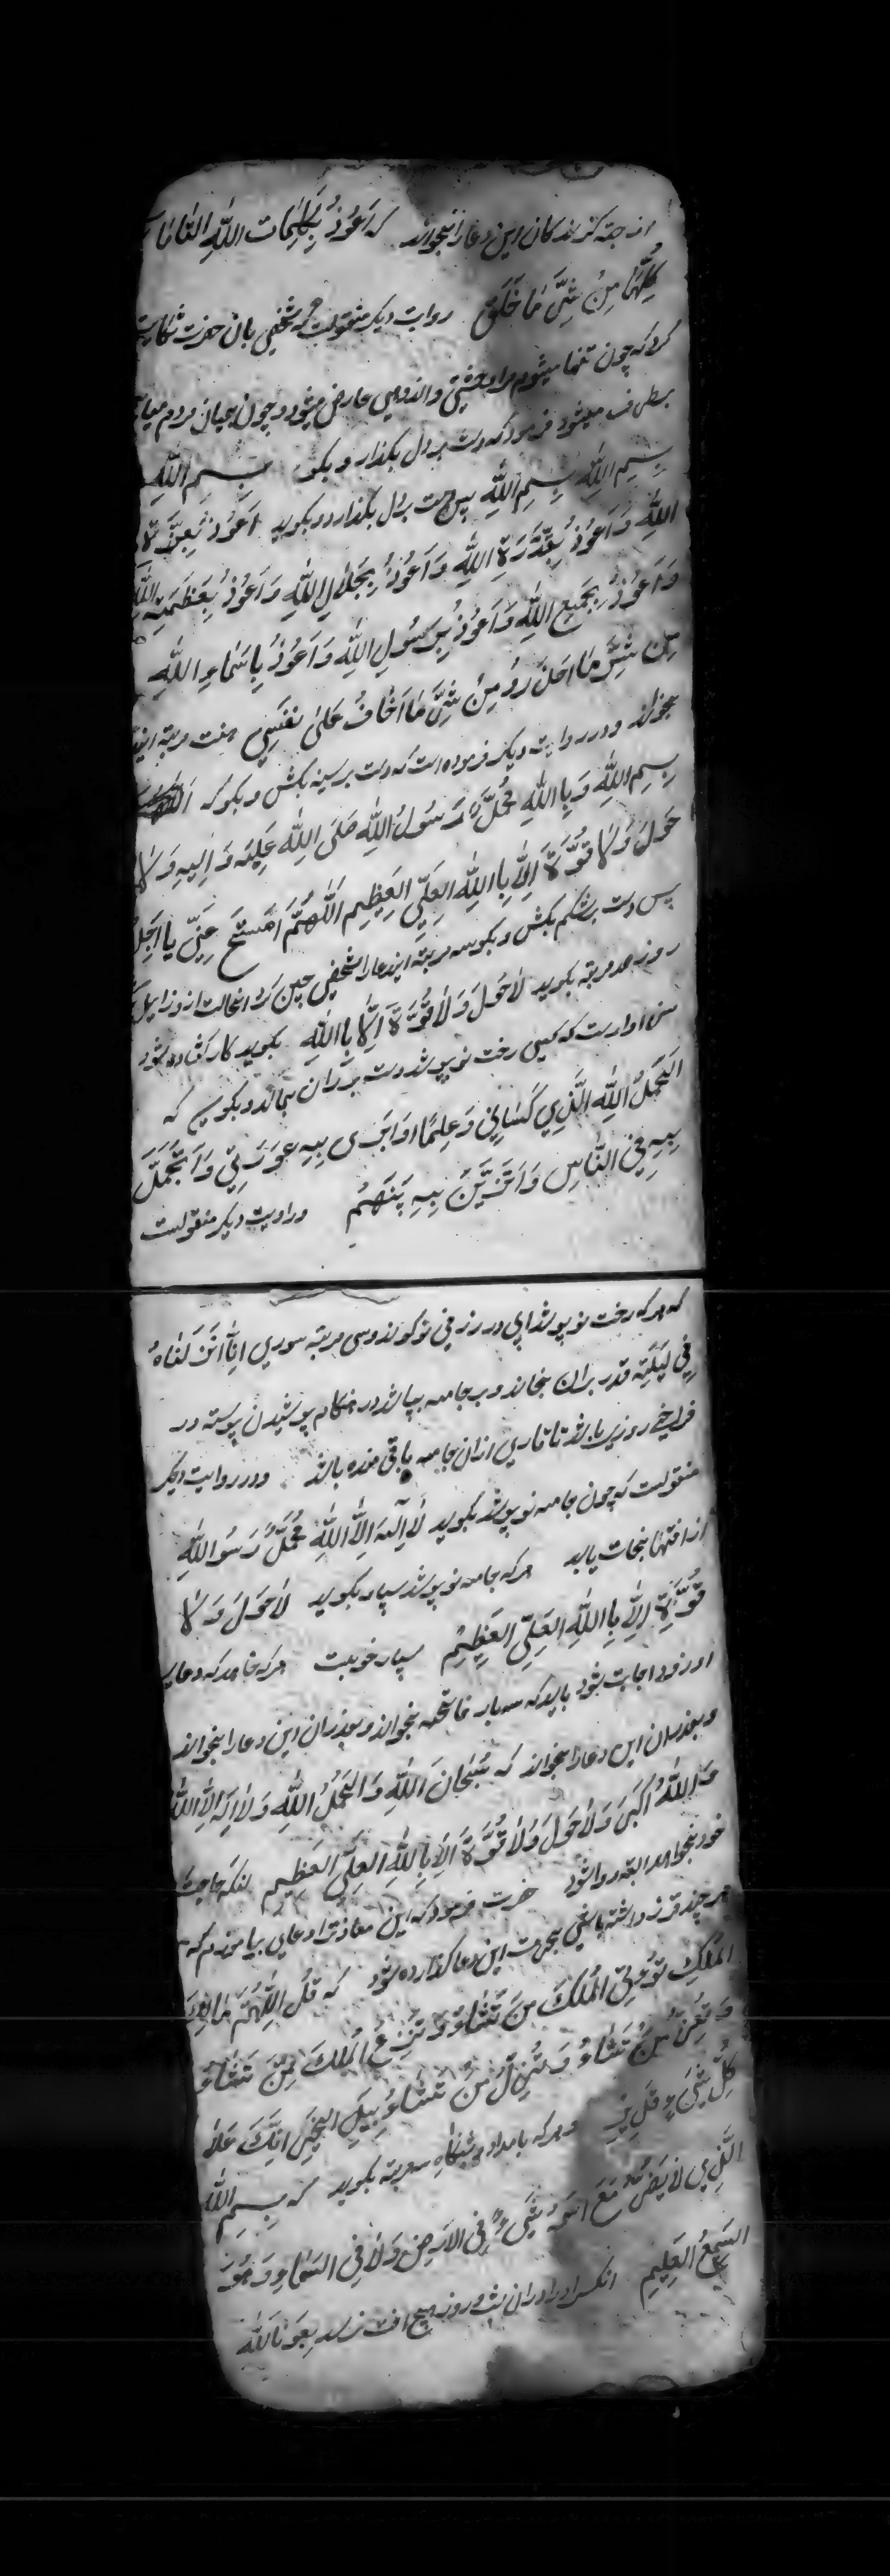 از جهة کزندکان این دعا را بخواند که اَعُوذُ بِکَلِمَاتِ اللّٰهِ التّٰامّٰاتِ
کُلِّهَا مِنْ شَرِّ مٰا خَلَقَ روایت دیکر منقولست که شخصی بان حضرت شکایت
کرد که چون تنها میشوم مرا وحشتی و اندوهی عارض میشود و چون بمیان مردم میایم
برطرف میشود فرمود که دست بر دل بکذار و بکو بِسمِ اللّٰهِ
بِسمِ اللّٰهِ بِسمِ اللّٰهِ پس دست بر دل بکذارد و بکوید اَعُوذُ بِعِزَّةِ
اللّٰهِ وَ اَعُوذُ بِقُدْرَةِ اللّٰهِ وَ اَعُوذُ بِجَلَالِ اللّٰهِ وَ اَعُوذُ بِعَظَمَتِ اللّٰهِ
وَ اَعُوذُ بِجَمِيعِ اللّٰهِ وَ اَعُوذُ بِرَسُولِ اللّٰهِ وَ اَعُوذُ بِاَسْمَاءِ اللّٰهِ
مِن شَرِّ مٰا اَحْذَرُ وَ مِنْ شَرِّ مٰا اَخٰافُ عَلیٰ نَفْسِي هفت مرتبه این
بخواند و در روایت دیکر فرموده است که دست بر سینه بکش و بکو که
بِسِمِ اللّٰهِ وَ بِاللّٰهِ مُحَمَّدٌ رَسُولُ اللّٰهِ صَلَّی اللّٰهِ عَلَیْهِ وَ اٰلِهِ وَلاٰ
حَوْلَ وَلاٰ قُوَّةَ اِلاّٰ بِاللّٰهِ العَلِيِّ العَظِيمِ اَللّٰهُمَّ اَمْسَحْ عَنِّي
پس دست بر شکم بکش و بکو سه مرتبه این دعا را شخصی چنین کرد انحالت از و زایل
روز صد مرتبه بکوید لاٰ حَوْلَ وَلاٰ قُوَّةَ اِلاّٰ بِاللّٰهِ بکوید کار کشاده شود
سزاوارست که کسی رخت نو پوشد دست بر ان بمالد و بکوید که
اَلحَمْدُ اللّٰهِ الَّذِي کَسَانِي اُوَارِی بِهِ عَوْرَتِي وَ اَتَجَمَّلُ
بِهِ فِي النّٰاسِ وَ اَتَزَيَّنُ بِهِ بَیْنَهُم و راویت دیکر منقولست
که هر که رخت نو پوشد ابی در ظرفی نو کند و سی مرتبه سوره اِنّٰا اَنْزَلْنٰاهُ
فِي لَيْلَةِ قدر بران بخاند و بر جامه بپاشد در هنکام پوشیدن پیوسته در
فراخی روزی باشد تا تاری ازان جامه باقی مانده باشد و در روایت دیکر
منقولست که چون جامه نو پوشد بکوید لاٰ اِلٰهَ اِلاَّ اللّٰهِ مُحَمَّدٌ رَسُو اللّٰهِ
از افتها نجات یابد هر که جامه نو پوشد بسیار بکوید لاٰ حَوْلَ وَلاٰ
قُوَّةِ اِلاّٰ بِاللّٰهِ العَلِيِّ العَظِيمُ بسیار خوبست هر که خاهد که دعای
او زود اجابت شود باید که سه بار فاتحه بخواند و بعد ازان این دعا را بخواند
و بعد ازان این دعا را بخواند که سُبْحٰانَ اللّٰهِ وَ الحَمْدُ اللّٰهِ وَلاٰ اِلٰهَ اِلاَّ اللّٰهُ
وَ اللّٰهُ اَکْبَرَ وَلاٰ حَوْلَ وَلاٰ قُوَّةَ اِلاّٰ بِاللّٰهِ العَلِيِّ العَظِيمِ حاجت
خود بخواهد البته روا شود حضرت فرمود که این معاذ ترا دعایی بیاموزم که
هر چند قرض داشته باشی ببرکت این دعا کذارده شود که قُلِ اللّٰهُمَّ مٰالِكَ
المُلْكِ تُؤْتِي المُلْكَ مَنْ تَشٰاءُ وَ تَنْزِعُ المُلْكَ مِمَّنْ تَشٰاءُ
وَ تُعِزُّ مَنْ تَشٰاءُ وَ تُذِلُّ مَنْ تَشٰاءُ بِيَدِكَ الخَيْرُ اِنَّكَ عَلیٰ
کُلِّ شَيْءٍ قَدِيرٌ و هر که بامداد و شبنکاه سه مرتبه بکوید که بِسمِ اللّٰهِ
الَّذِي لاٰ يَضُرُّ مَعَ اسْمِهِ شَيْءٌ فِي الاَرْضِ وَلاٰ فِي السَّمٰاءِ وَهُوَ
السَّمِعُ العَلِيمِ انکس را دران شب و روز هیچ افت نرسد بِعَوْنَ اللّٰهِ